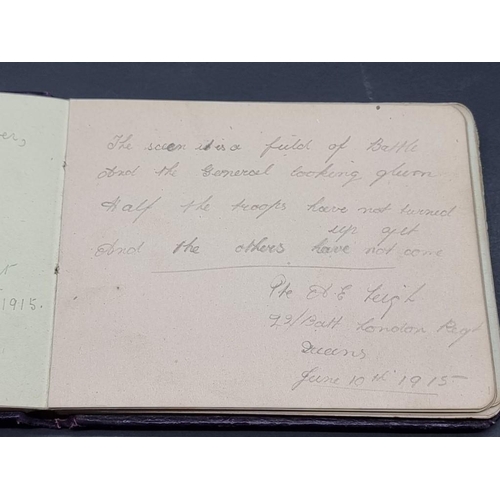 The scen it is a field of Battle
And the General looking glum
Half the troops have not turned
up yet
And the others have not come
Pte E Leigh
Batt London Regt
Queens
June 10th 1915
1915.